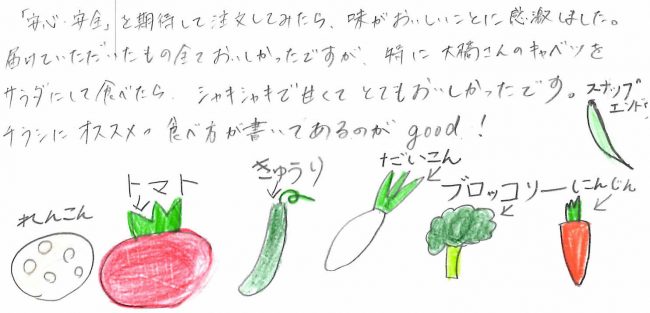 「安心・安全」を期待して注文してみたら、味がおいしいことに感激しました。
届けていただいたもの全ておいしかったですが、特に大橋さんのキャベツを
サラダにして食べたら、シャキシャキで甘くてとてもおいしかったです。
チラシにオススメの食べ方が書いてあるのがgood!
スナップ
エンドウ
れんこん
トマト
きゅうり
だいこん
ブロッコリー
にんじん